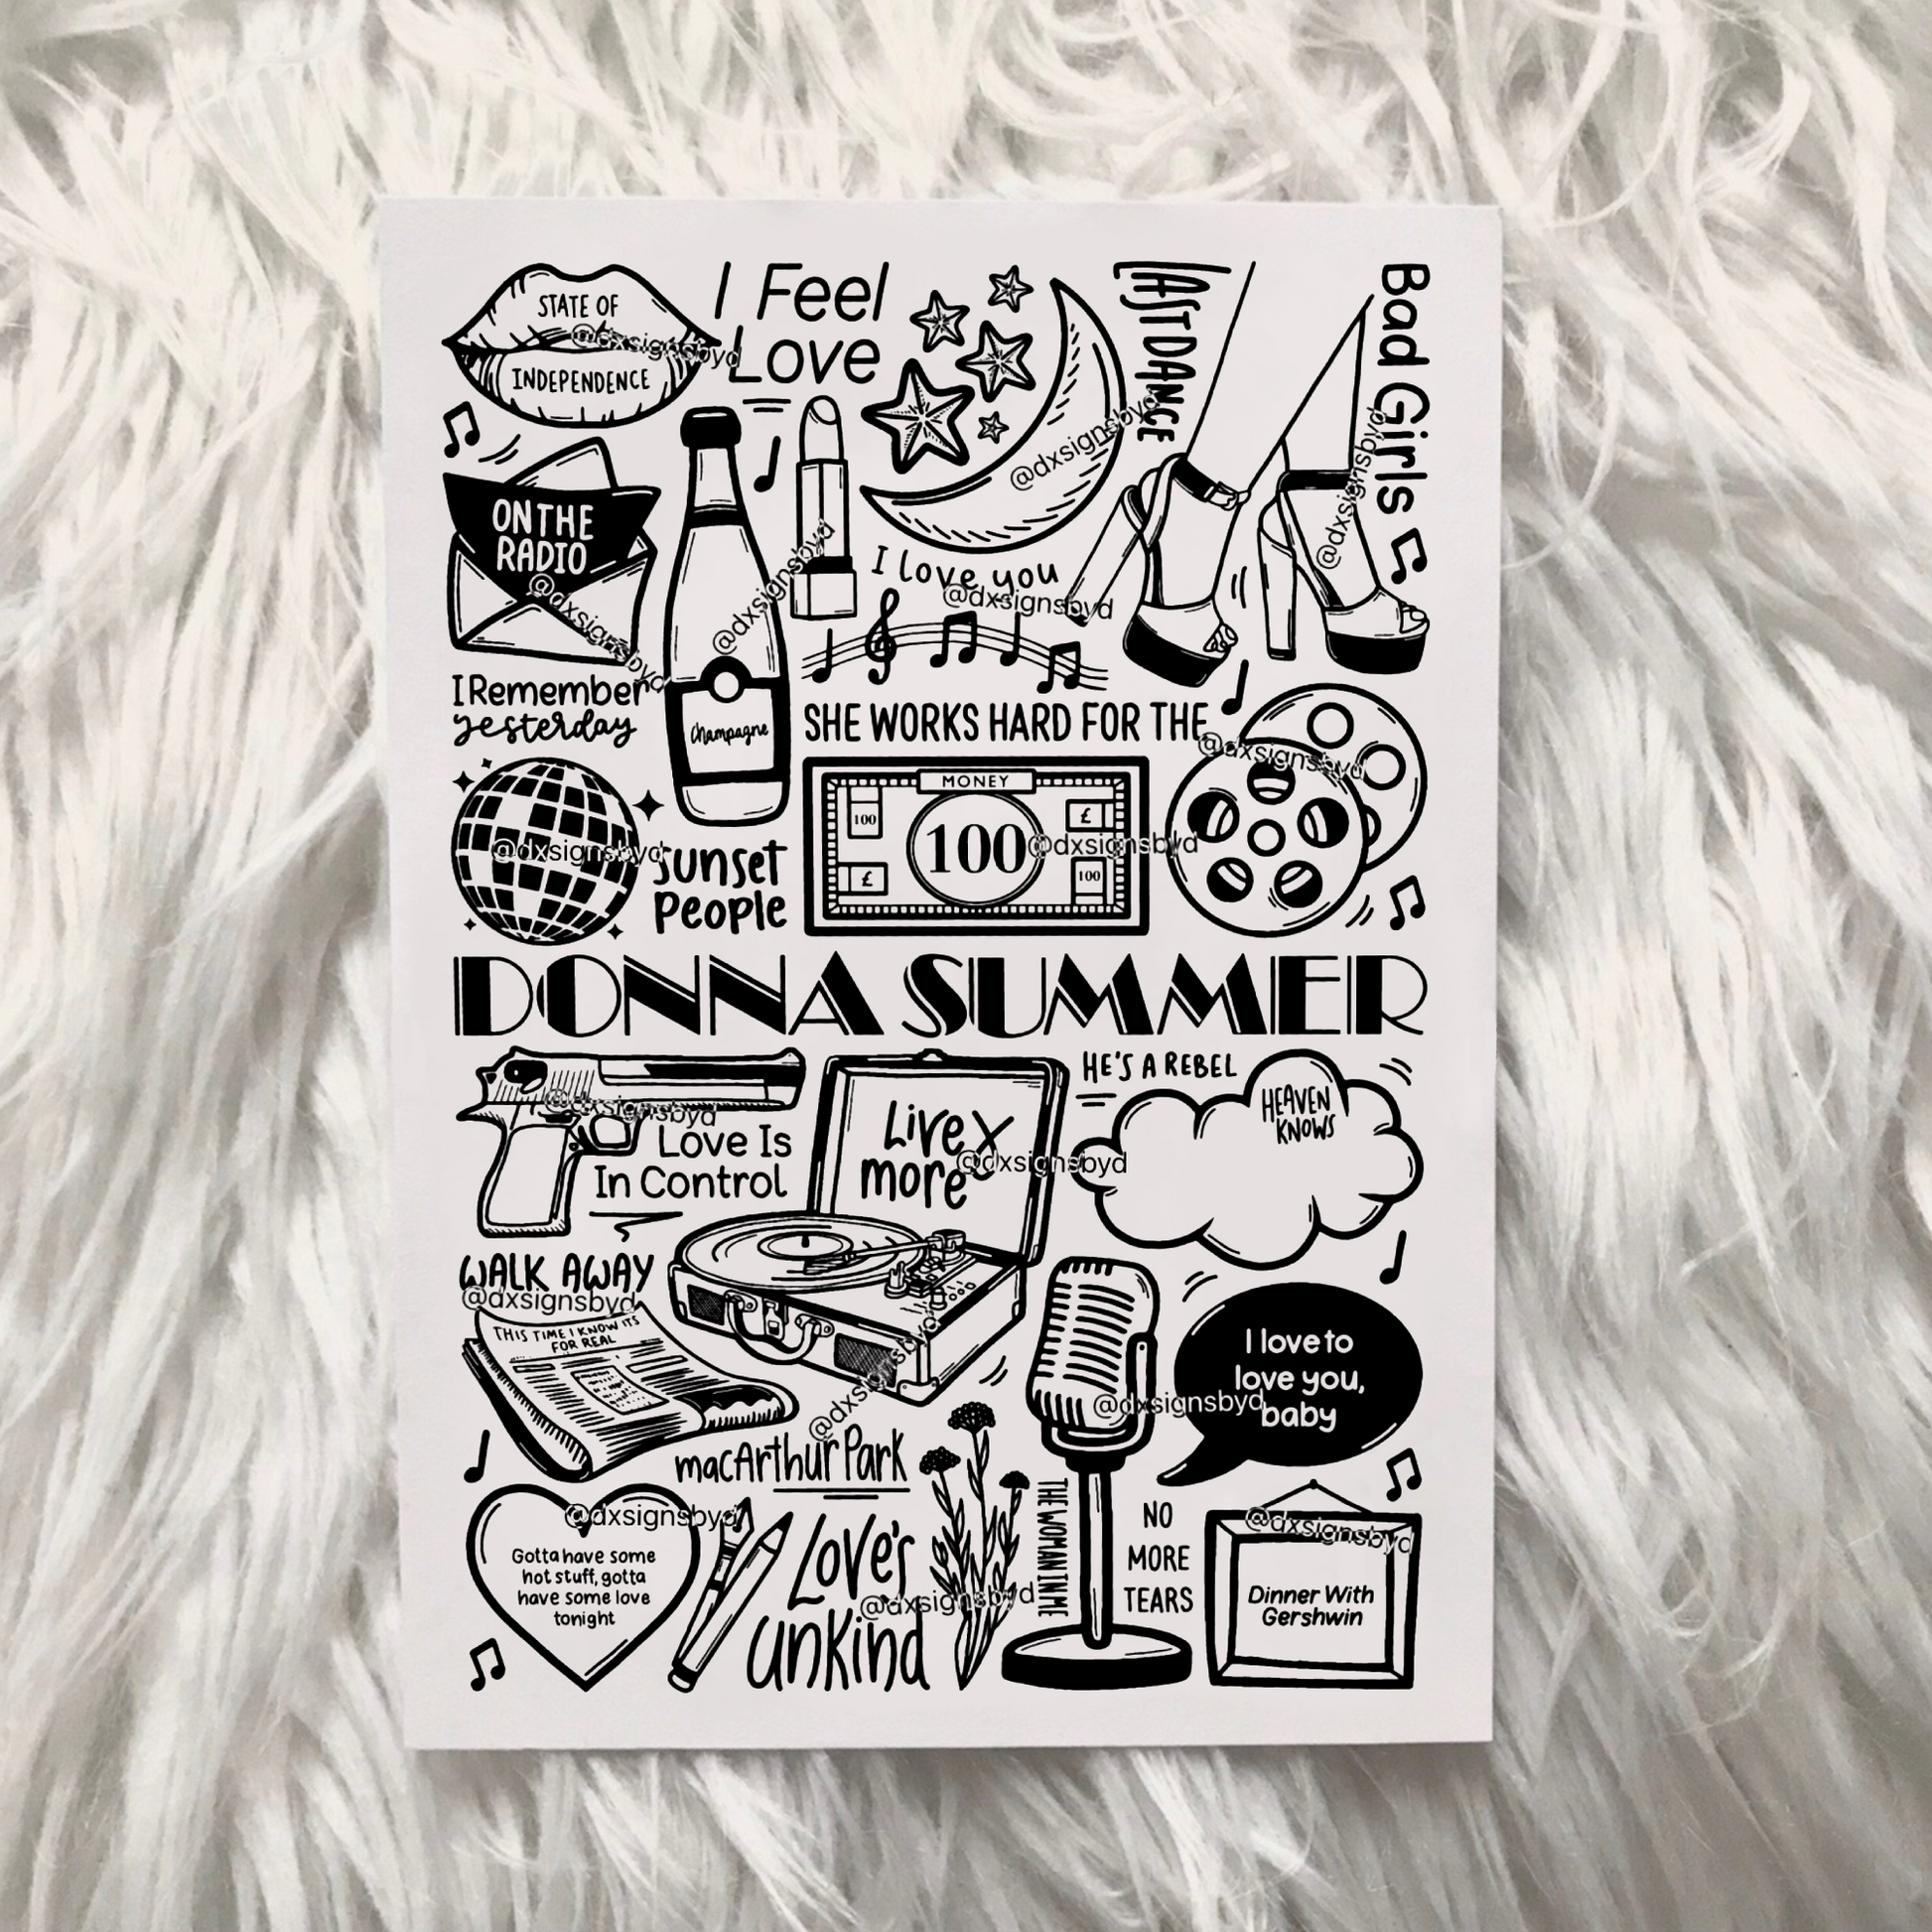 STATE OF
INDEPENDENCE
@dxsignsbyd
I Feel
Love
LAST DANCE
Bad Girls
@dxsignsbyd
@dxsignsbyd
ON THE
RADIO
@dxsignsbyd
@dxsignsbyd
I love you
@dxsignsbyd
I Remember
yesterday
Champagne
SHE WORKS HARD FOR THE
@dxsignsbyd
MONEY
100
£
100
£
100
@dxsignsbyd
@dxsignsbyd
Sunset
People
DONNA SUMMER
@dxsignsbyd
Love Is
In Control
Live X
more
@dxsignsbyd
HE'S A REBEL
HEAVEN
KNOWS
WALK AWAY
@dxsignsbyd
THIS TIME I KNOW ITS
FOR REAL
@dxsignsbyd
I love to
love you,
baby
@dxsignsbyd
macArthur Park
@dxsignsbyd
Gotta have some
hot stuff, gotta
have some love
tonight
Love's
unkind
@dxsignsbyd
THE WOMAN IN ME
NO
MORE
TEARS
@dxsignsbyd
Dinner With
Gershwin